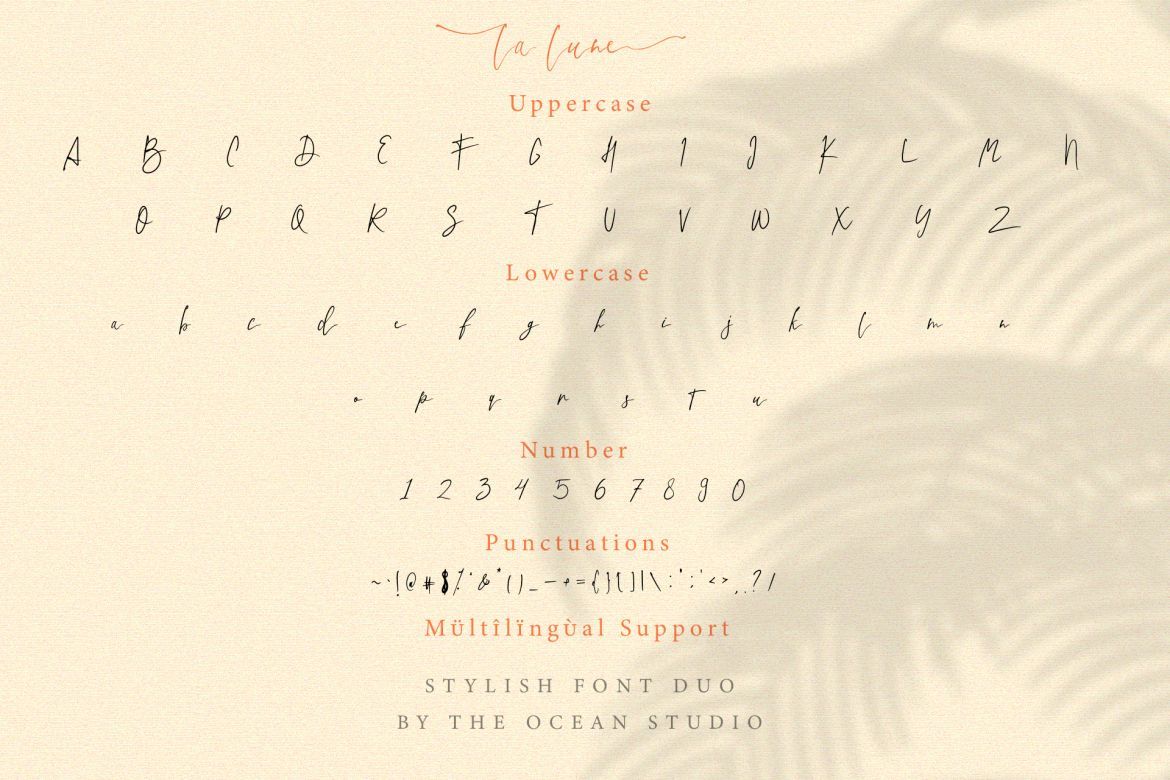 la lune
Uppercase
A B C D E F G H I J K L M N
O P Q R S T U V W X Y Z
Lowercase
a b c d e f g h i j k l m n
o p q r s t u
Number
1 2 3 4 5 6 7 8 9 0
Punctuations
~ ` ! @ # $ % ^ & * ( ) _ - + = { } [ ] | \ : " ; ' < > , . ? /
Mültîlïngùal Support
STYLISH FONT DUO
BY THE OCEAN STUDIO